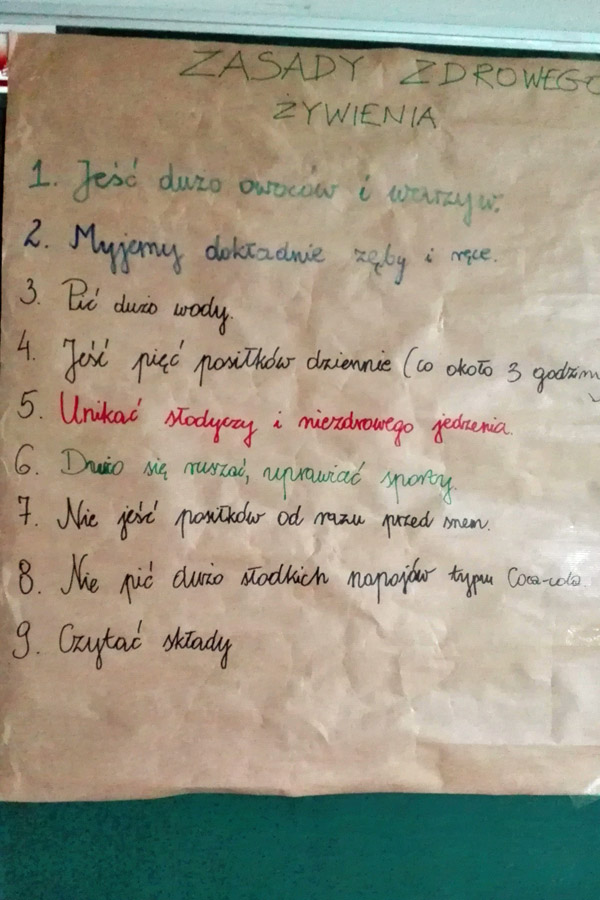 ZASADY ZDROWEGO
ŻYWIENIA
1. Jeść dużo owoców i warzyw.
2. Myjemy dokładnie zęby i ręce.
3. Pić dużo wody.
4. Jeść pięć posiłków dziennie (co około 3 godziny
5. Unikać słodyczy i niezdrowego jedzenia.
6. Dużo się ruszać, uprawiać sporty.
7. Nie jeść posiłków od razu przed snem.
8. Nie pić dużo słodkich napojów typu Coca-cola.
9. Czytać składy